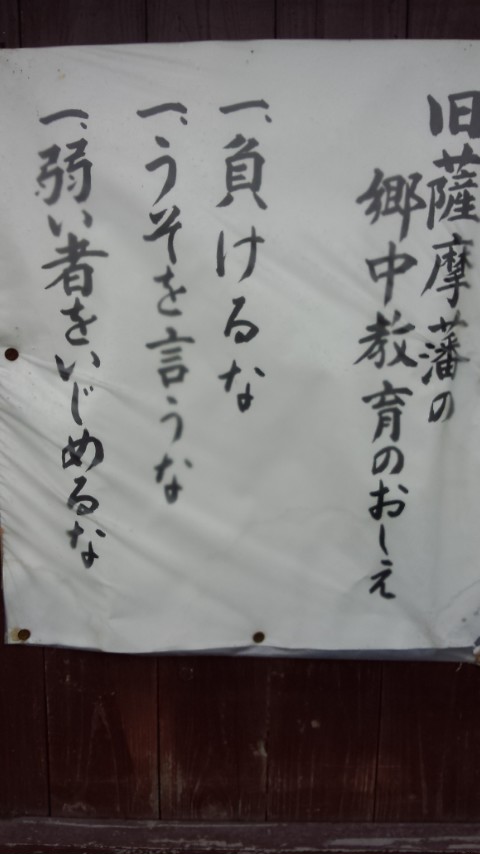 旧薩摩藩の
郷中教育のおしえ
一、負けるな
一、うそを言うな
一、弱い者をいじめるな